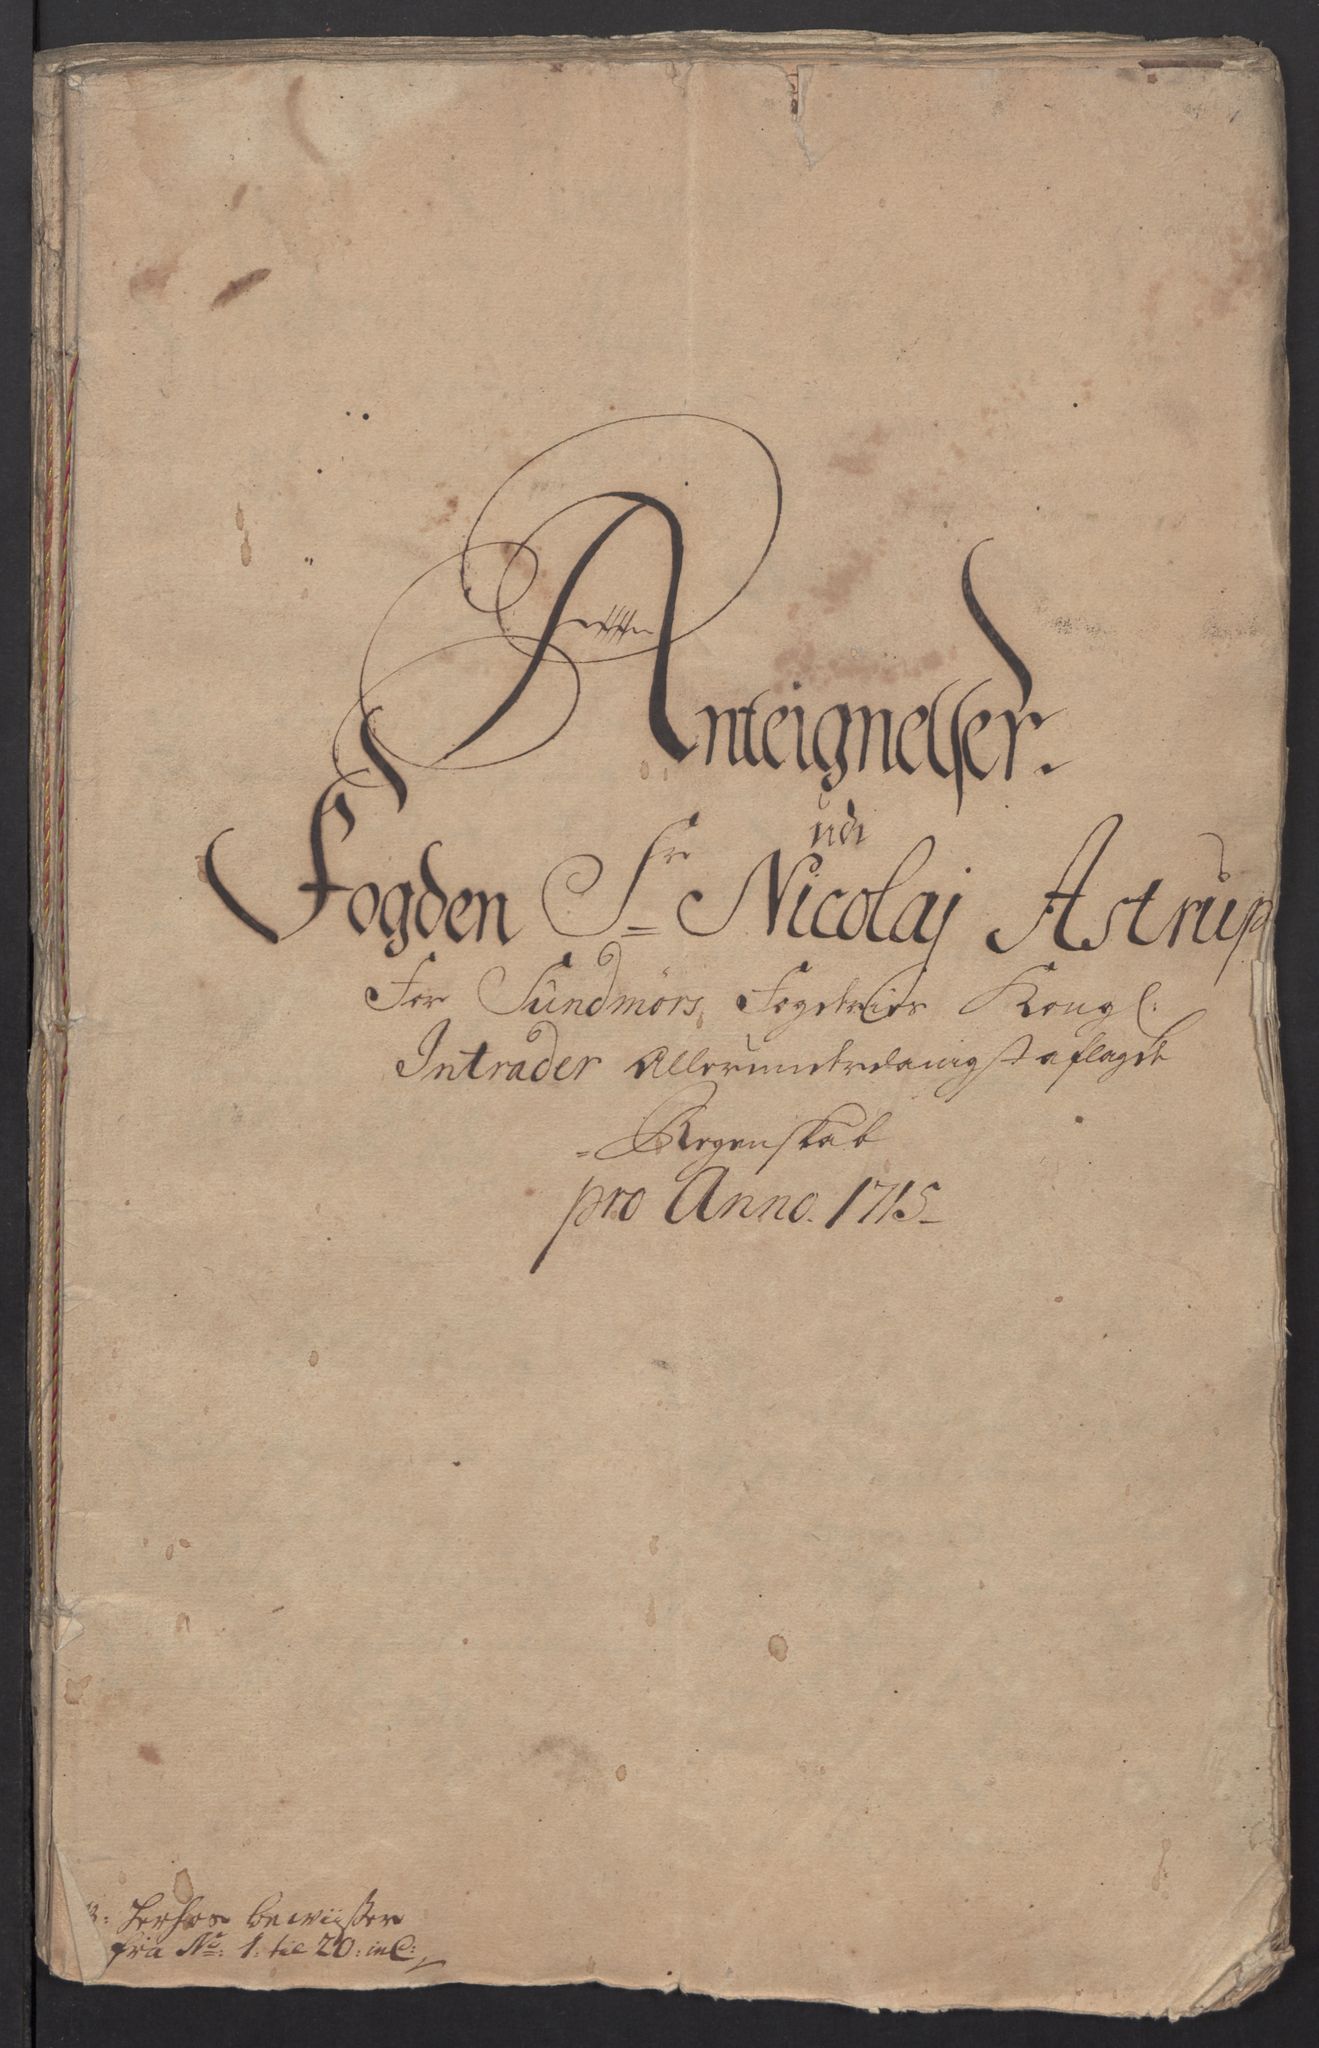 Anteignelser.
udi
Fogden Sr Nicolaj Astrup
For Sundmörs Fogderies Kongl:
Intrader Allerunderdanigst aflagde
Regenskab
pro Anno. 1715
B: herhos bewiisser
fra No: 1: til 20: incl: